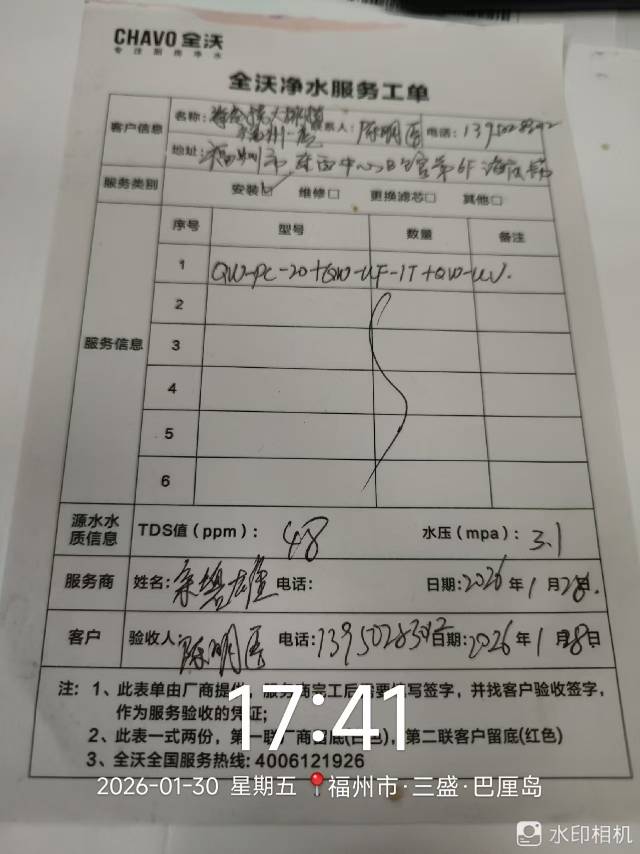 CHAVO 全沃
专注厨房净水
全沃净水服务工单
客户信息
名称:
联系人: 陈明
电话:
地址: 福州市
服务类别
安装☑ 维修□ 更换滤芯□ 其他□
服务信息
序号 型号 数量 备注
1 QW-PC-20+QW-UF-1T+QW-UV.
2
3
4
5
6
源水水质信息
TDS值(ppm): 48 水压(mpa): 3.1
服务商 姓名: 电话: 日期:2026年1月28日.
客户 验收人: 陈明 电话: 日期:2026年1月28日
注: 1、此表单由厂商提供,服务商完工后需要填写签字,并找客户验收签字,
作为服务验收的凭证;
2、此表一式两份,第一联厂商留底(白色),第二联客户留底(红色)
3、全沃全国服务热线: 4006121926
17:41
2026-01-30 星期五 福州市·三盛·巴厘岛
水印相机